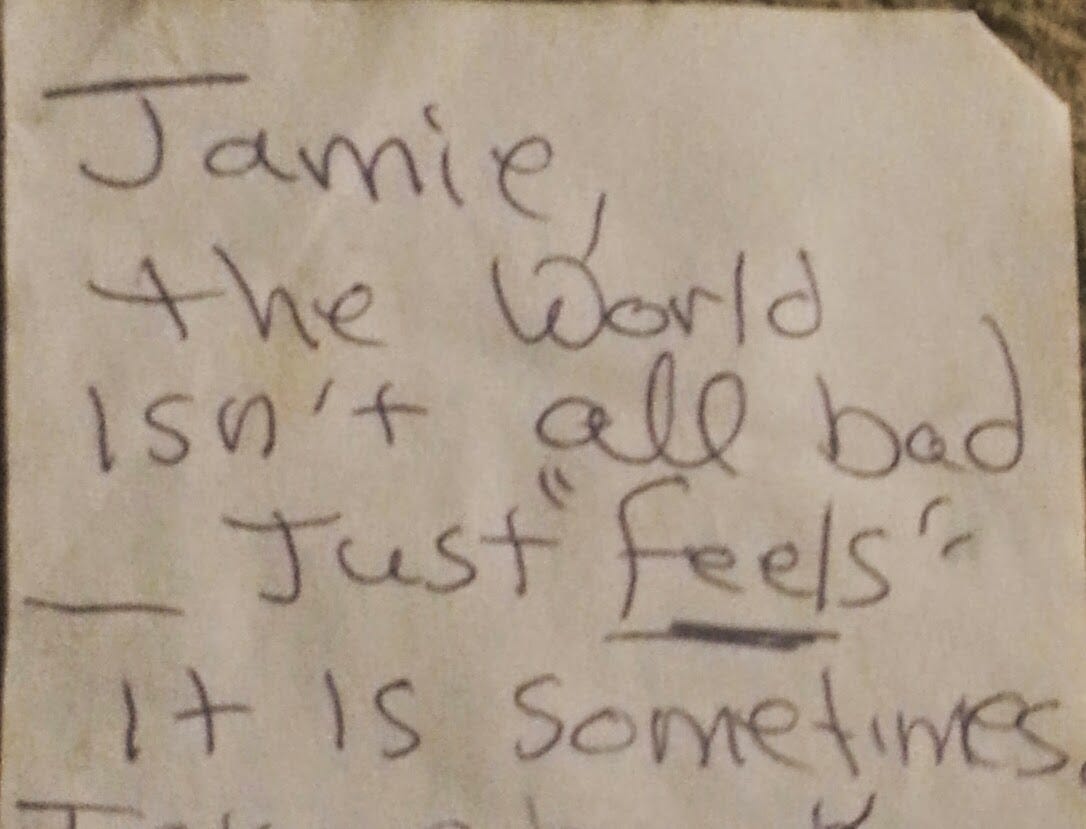 Jamie,
the World
isn't all bad
— Just "feels"
it is sometimes.